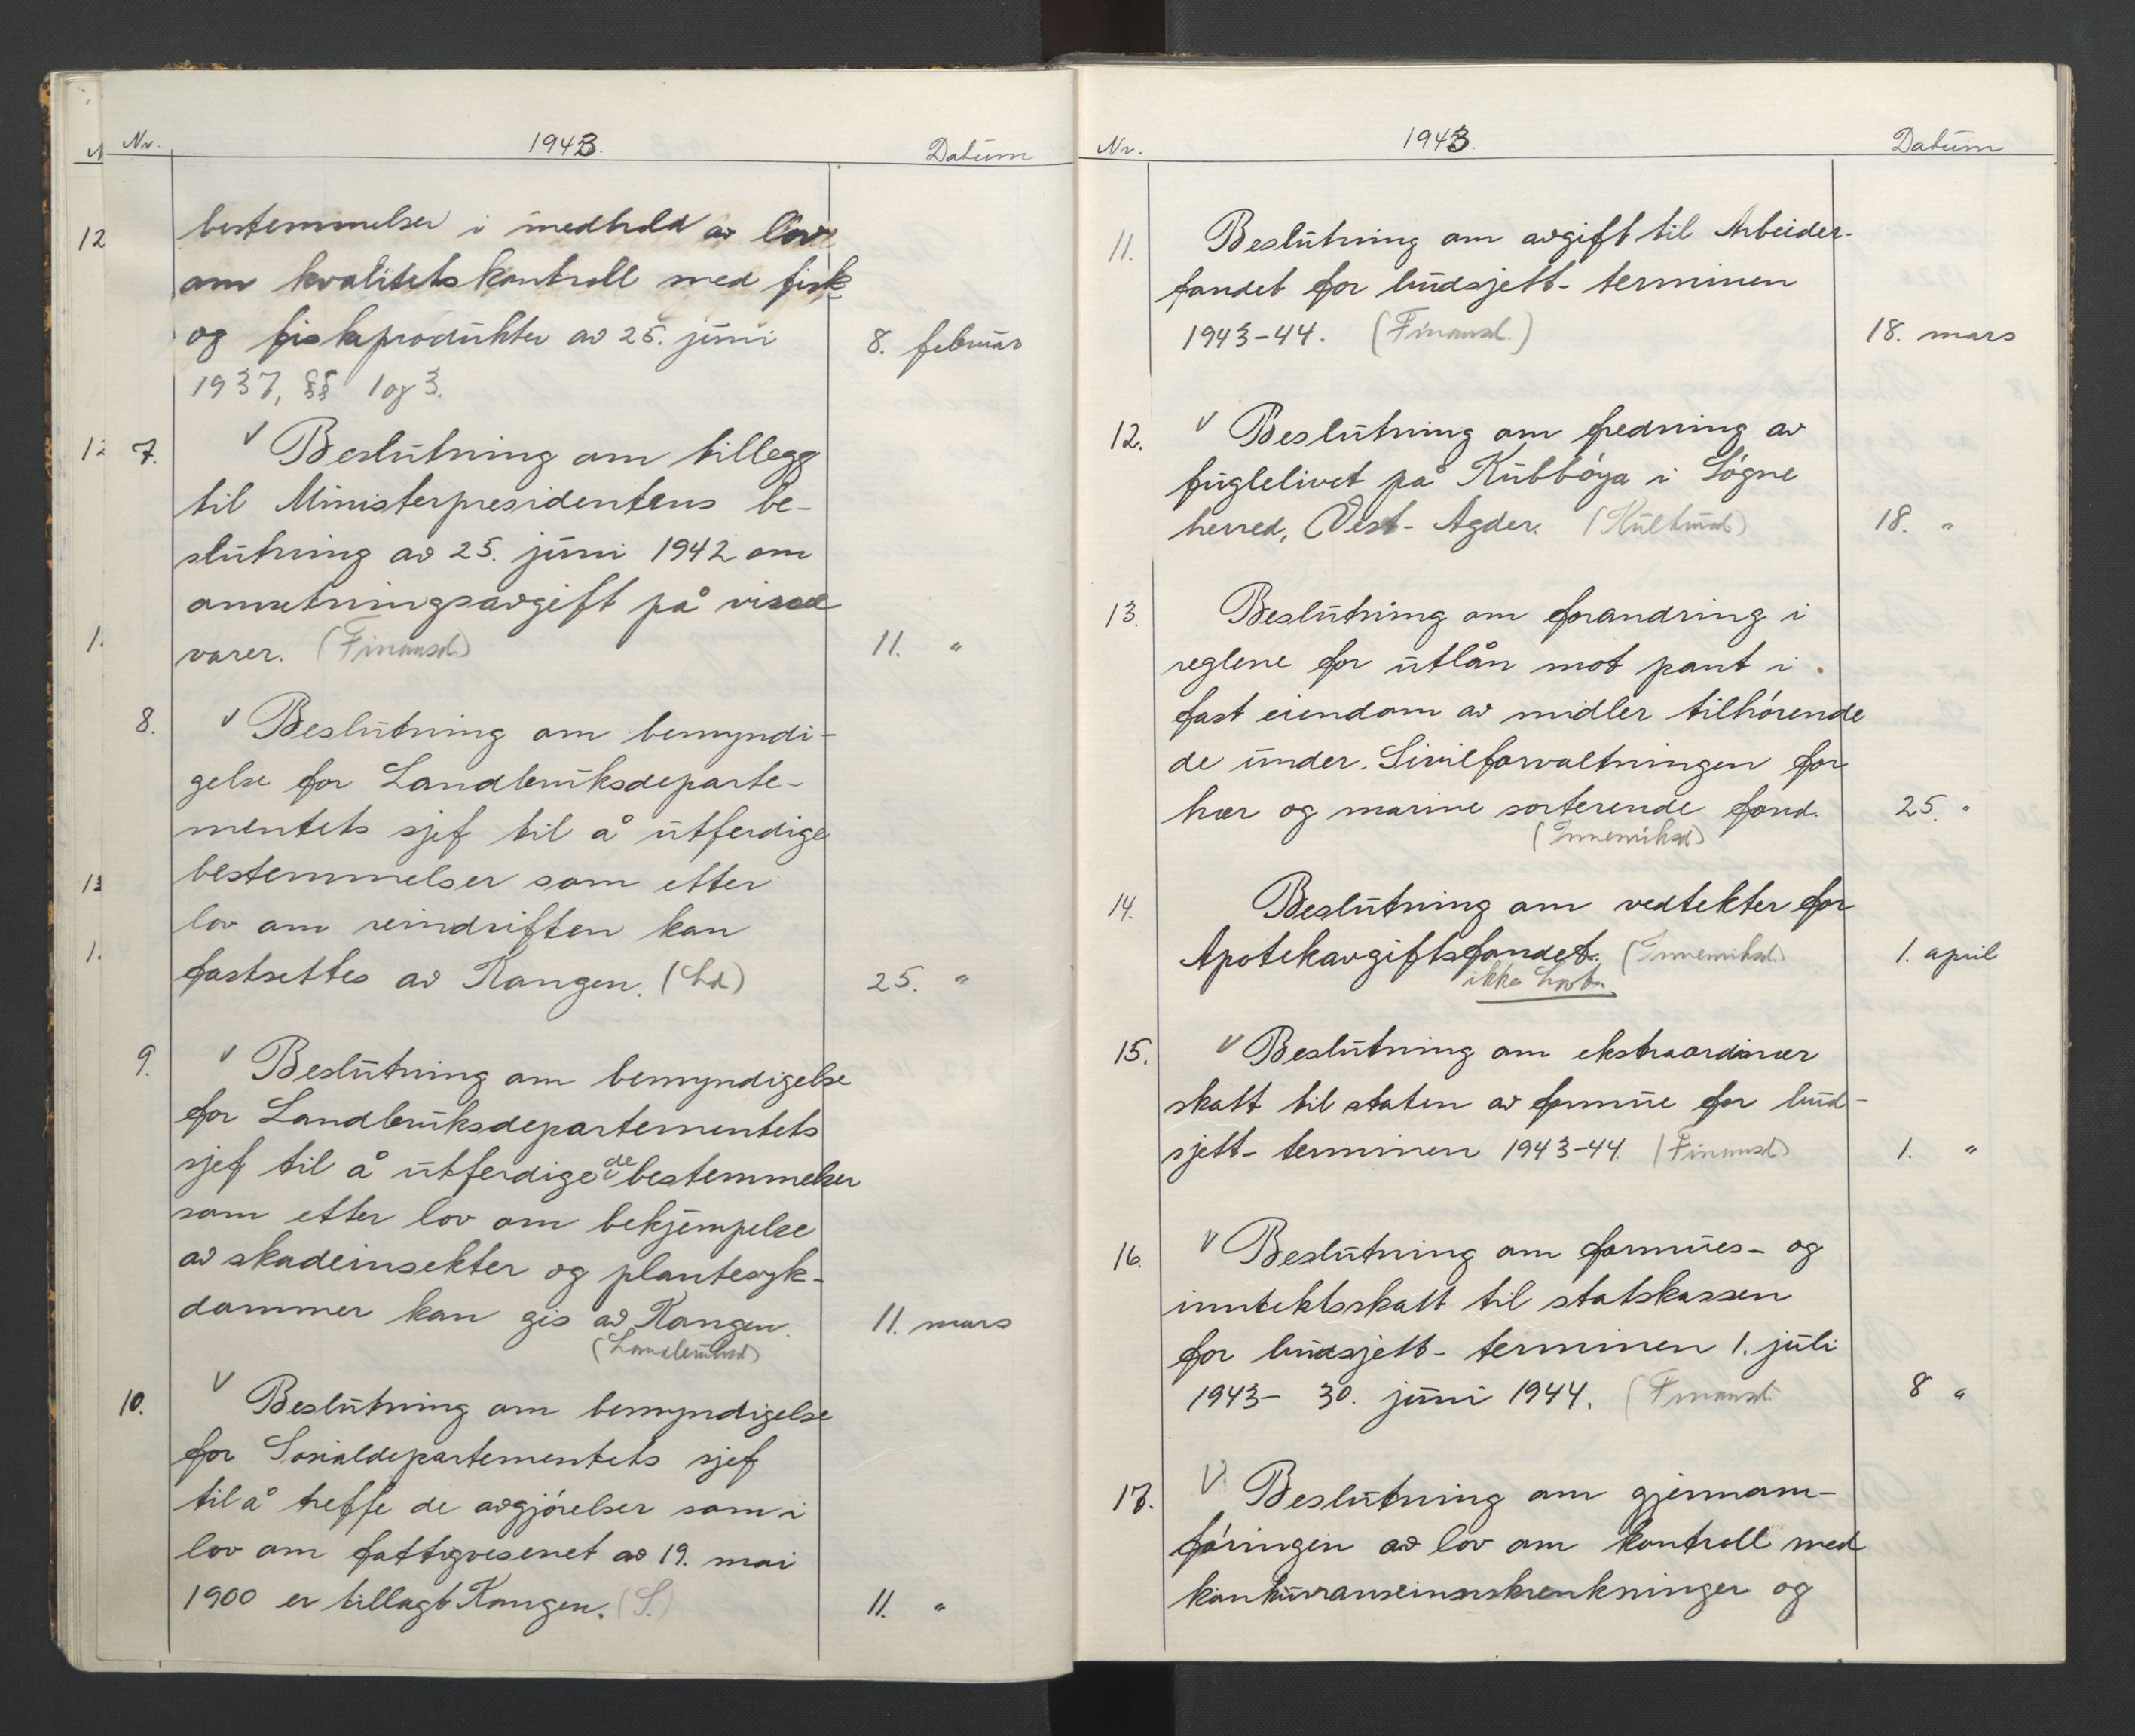 Nr. 1943. Datum
bestemmelser i medhold av lov
om kvalitetskontroll med fisk
og fiskeprodukter av 25. juni 8. februar
1937, §§ 1 og 3.
7. V Beslutning om tillegg
til Ministerpresidentens be-
slutning av 25. juni 1942 om
omsetningsavgift på visse
varer. (Finansd.) 11. "
8. V Beslutning om bemyndi-
gelse for Landbruksdeparte-
mentets sjef til å utferdige
bestemmelser som etter
lov om reindriften kan
fastsettes av Kongen. (Ld) 25. "
9. V Beslutning om bemyndigelse
for Landbruksdepartementets
sjef til å utferdige de bestemmelser
som etter lov om bekjempelse
av skadeinsekter og plantesyk-
dommer kan gis av Kongen. 11. mars
(Landbruksd)
10. V Beslutning om bemyndigelse
for Sosialdepartementets sjef
til å treffe de avgjørelser som i
lov om fattigvesenet av 19. mai
1900 er tillagt Kongen. (S.) 11. "
12
12
1.
13
1.
Nr. 1943. Datum
11. Beslutning om avgift til Arbeider-
fondet for budsjett-terminen
1943-44. (Finansd.) 18. mars
12. V Beslutning om fredning av
fuglelivet på Kubbøya i Søgne
herred, Vest-Agder. (Kulturd) 18. "
13. Beslutning om forandring i
reglene for utlån mot pant i
fast eiendom av midler tilhørende
de under Sivilforvaltningen for
hær og marine sorterende fond. 25. "
(Innenriksd)
14. Beslutning om vedtekter for
Apotekavgiftsfondet. (Innenriksd) 1. april
ikke Lovt.
15. V Beslutning om ekstraordinær
skatt til staten av formue for bud-
sjett-terminen 1943-44. (Finansd) 1. "
16. V Beslutning om formues- og
inntektsskatt til statskassen
for budsjett-terminen 1. juli
1943- 30. juni 1944. (Finansd 8 "
17. V Beslutning om gjennom-
føringen av lov om kontroll med
konkurranseinnskrenkninger og